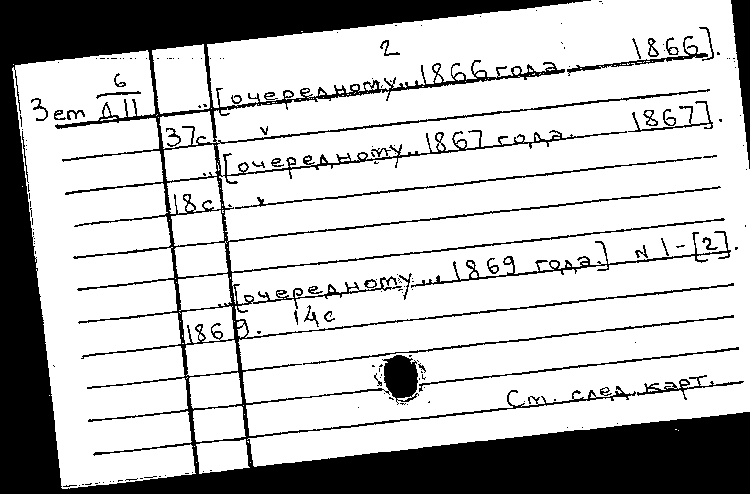 2
Зет 6/Д11 ..[очередному...1866 года... 1866].
37с. v
..[очередному...1867 года. 1867].
18с. v
..[очередному...1869 года.] № 1-[2].
1869. 14с
См. след. карт.